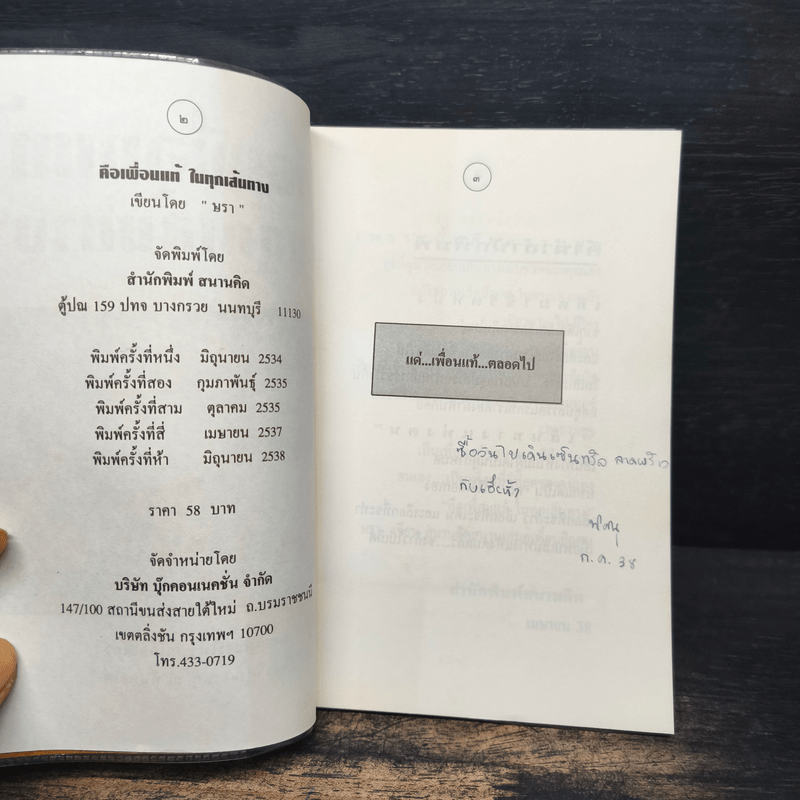 ๒
คือเพื่อนแท้ ในทุกเส้นทาง
เขียนโดย " ษรา "
จัดพิมพ์โดย
สำนักพิมพ์ สนานคิด
ตู้ปณ 159 ปทจ บางกรวย นนทบุรี 11130
พิมพ์ครั้งที่หนึ่ง มิถุนายน 2534
พิมพ์ครั้งที่สอง กุมภาพันธุ์ 2535
พิมพ์ครั้งที่สาม ตุลาคม 2535
พิมพ์ครั้งที่สี่ เมษายน 2537
พิมพ์ครั้งที่ห้า มิถุนายน 2538
ราคา 58 บาท
จัดจำหน่ายโดย
บริษัท บุ๊กคอนเนคชั่น จำกัด
147/100 สถานีขนส่งสายใต้ใหม่ ถ.บรมราชชนนี
เขตตลิ่งชัน กรุงเทพฯ 10700
โทร.433-0719
๓
แด่...เพื่อนแท้...ตลอดไป
ซื้อวันไปเดินเซ็นทรัล ลาดพร้าว
ก.ค. 38